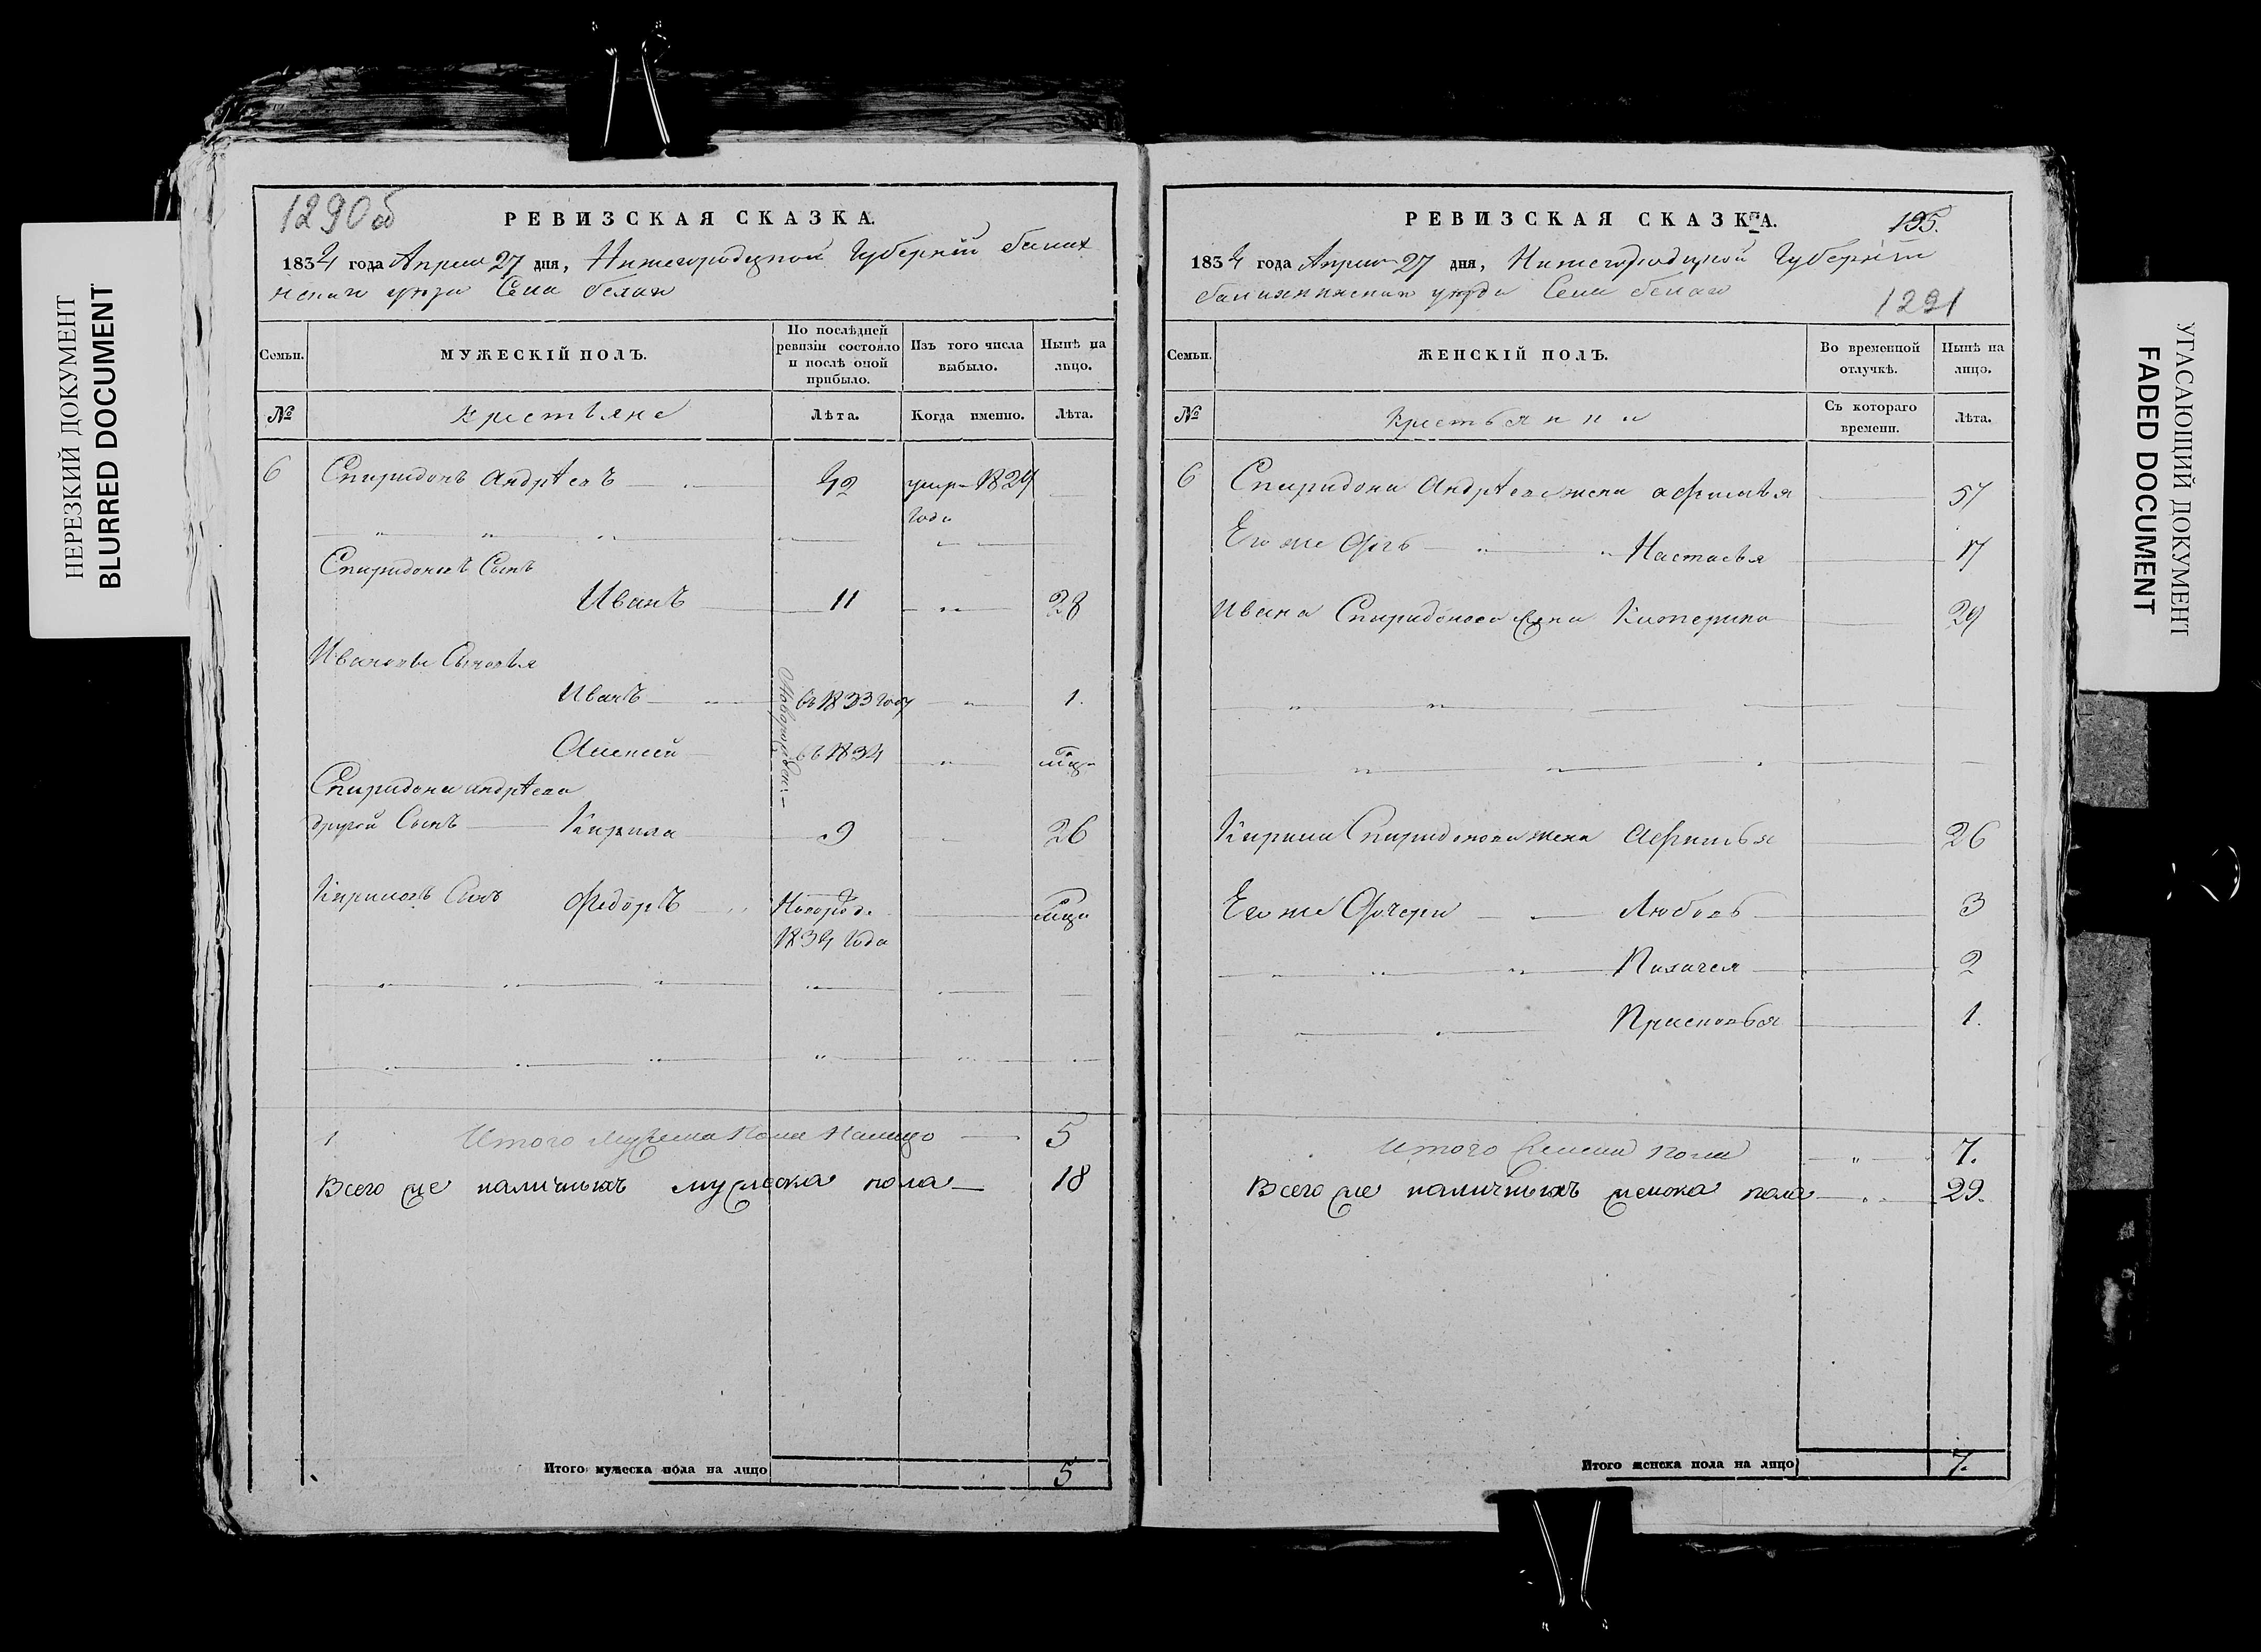 НЕРЕЗКИЙ ДОКУМЕНТ
BLURRED DOCUMENT
1290об
РЕВИЗСКАЯ СКАЗКА.
1834 года Апреля 27 дня, Нижегородской Губернии балах
нскаго уезда Села белаго
Семьи. МУЖЕСКІЙ ПОЛЪ. По послѣдней ревизіи состояло и послѣ оной прибыло. Изъ того числа выбыло. Нынѣ на лицо.
№ крестьяне Лѣта. Когда именно. Лѣта.
6 Спиридонъ Андрѣевъ 42 умре 1829
года
Спиридоновъ Сынъ
Иванъ 11 28
Ивановы Сыновья
Новорожден:
Иванъ въ 1833 году 1.
Алексей въ 1834
Спиридона андрѣева
другой Сынъ Кирила 9 26
Кириловъ Сынъ Федоръ Новорож.
1834 года
1 Итого мужеска Пола Налицо 5
Всего же наличныхъ мужеска пола 18
Итого мужеска пола на лицо 5
РЕВИЗСКАЯ СКАЗКА. 195.
1834 года Апреля 27 дня, Нижегородской Губернии
балахнинскаго уезда Села белаго
1291
Семьи. ЖЕНСКІЙ ПОЛЪ. Во временной отлучкѣ. Нынѣ на лицо.
№ Крестьянки Съ котораго времени. Лѣта.
6 Спиридона Андрѣева жена афимья 57
Его же Дочь Настасья 17
Ивана Спиридонова жена Катерина 29
Кирила Спиридонова жена Афимья 26
Его же Дочери Любовь 3
Пилагея 2
Прасковья 1.
Итого женска пола 7.
Всего же наличныхъ женска пола 29.
Итого женска пола на лицо 7.
УГАСАЮЩИЙ ДОКУМЕНТ
FADED DOCUMENT